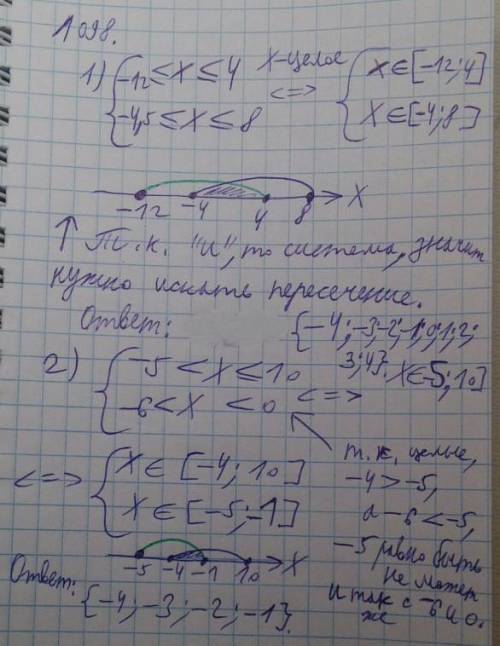 1098.
1) { -12 ≤ x ≤ 4 x-целое { x ∈ [-12; 4]
{ -4,5 ≤ x ≤ 8 <=> { x ∈ [-4; 8]
-12 -4 4 8 x
↑ Т.к. "и", то система, значит
нужно искать пересечение.
Ответ: {-4; -3; -2; -1; 0; 1; 2;
3; 4}.
2) { -5 < x ≤ 10 x ∈ -5; 10]
{ -6 < x < 0 <=>
<=> { x ∈ [-4; 10]
{ x ∈ [-5; -1]
т.к. целые,
-4 > -5,
а -6 < -5,
-5 равно быть
не может
и так же с -6 и 0.
-5 -4 -1 10 x
Ответ:
{-4; -3; -2; -1}.